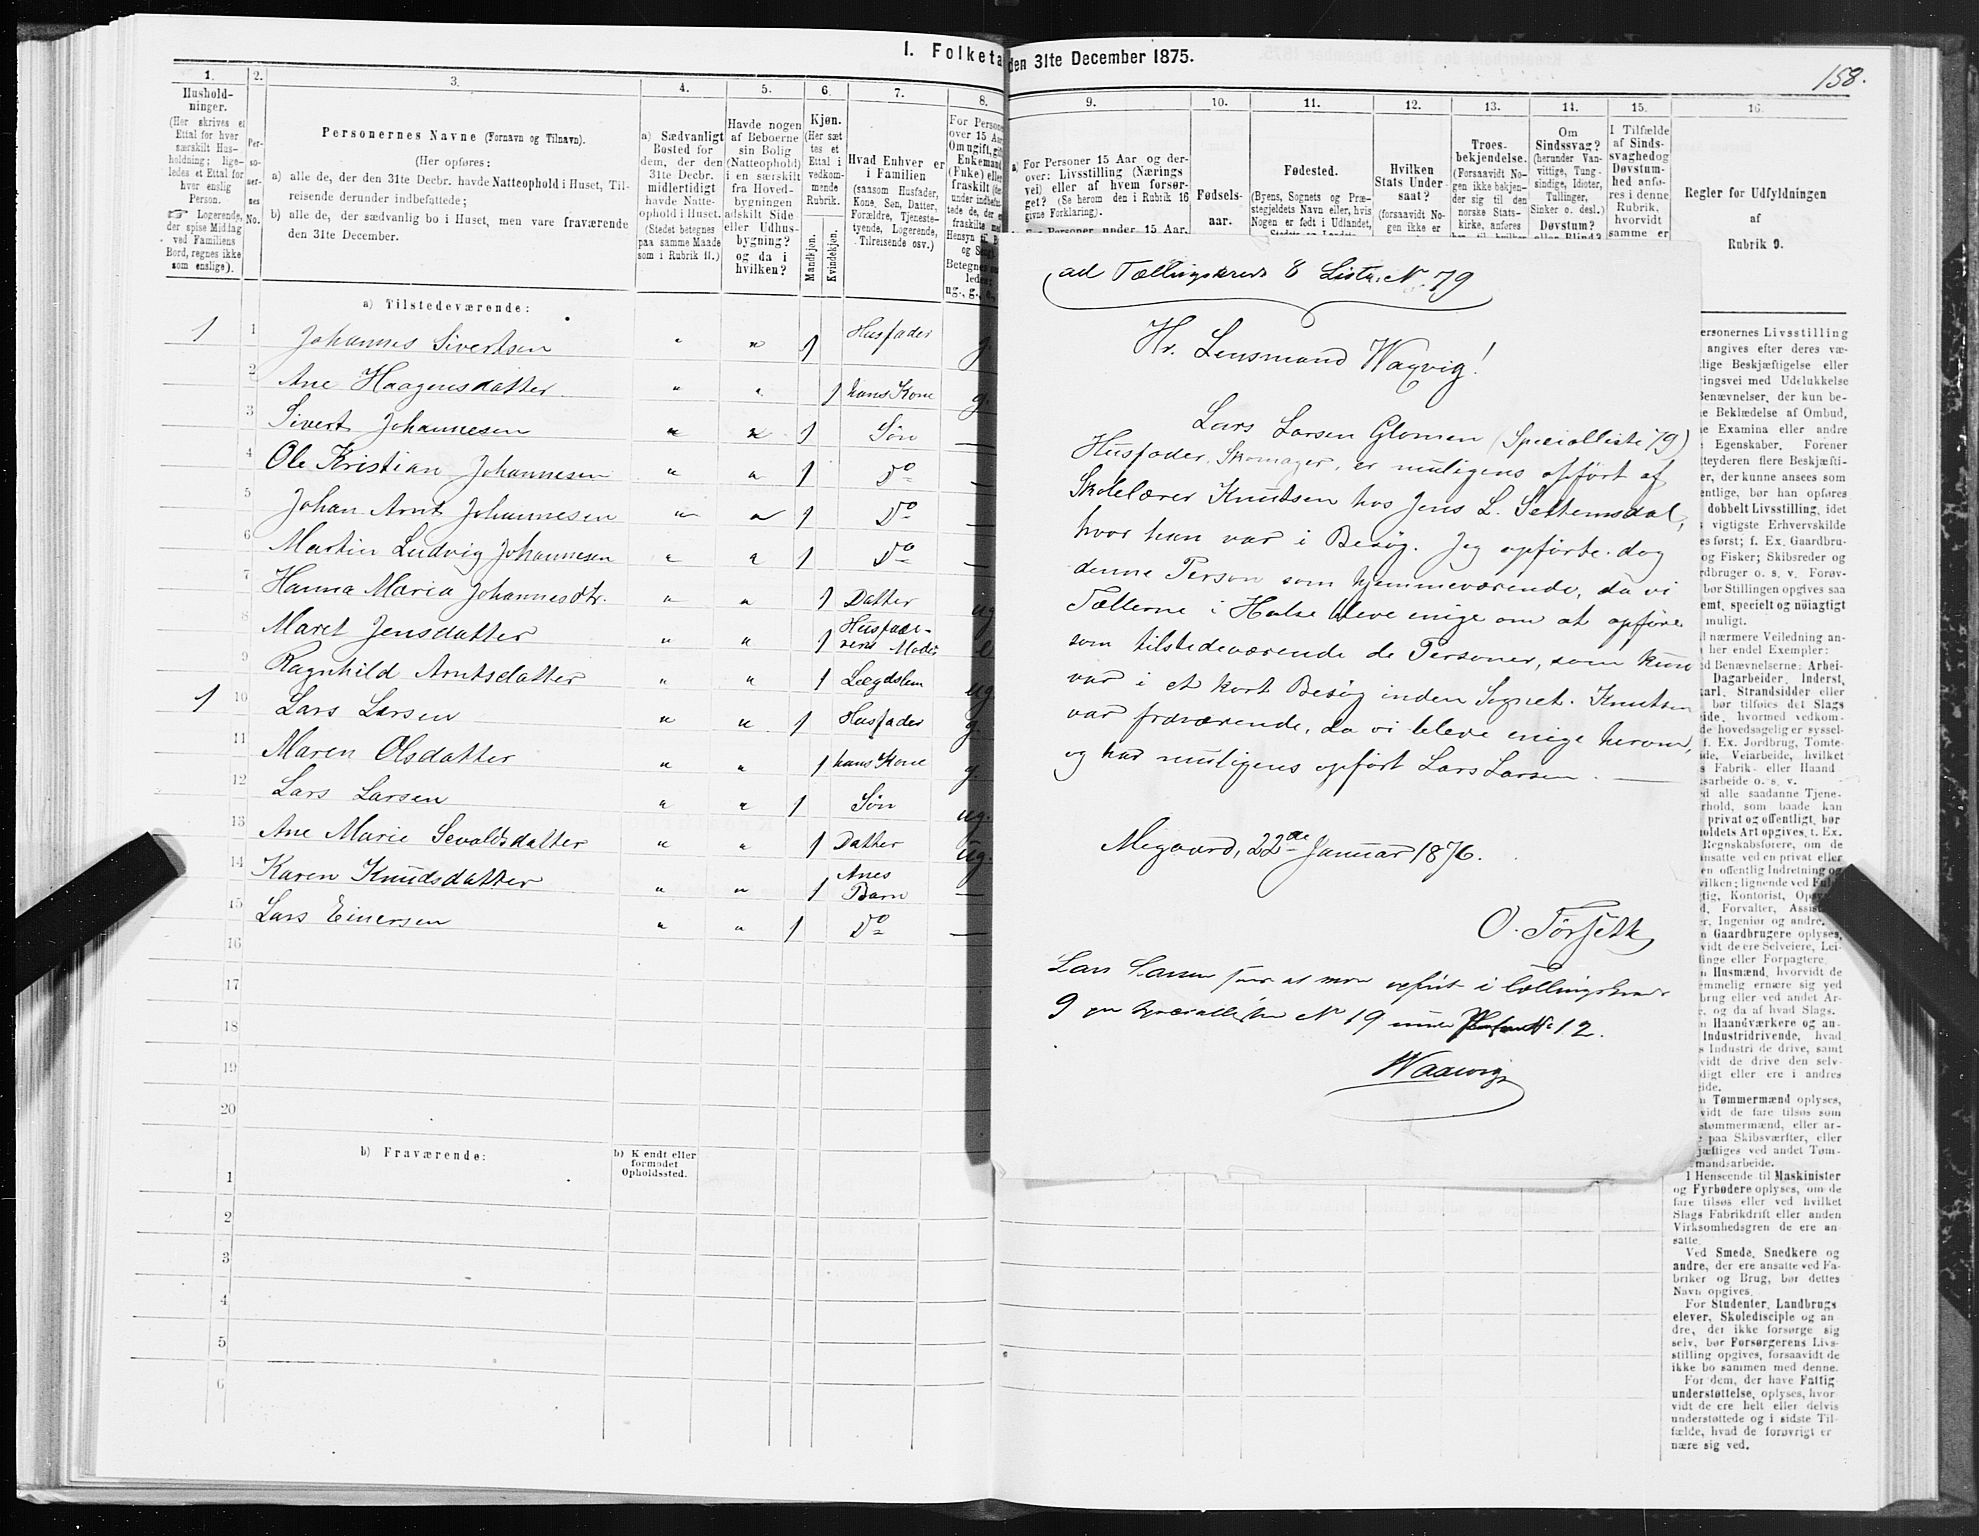 I. Folketa
den 31te December 1875.
158.
1.
Hushold-
ninger.
(Her skrives et
Ettal for hver
særskilt Hus-
holdning; lige-
ledes et Ettal for
hver enslig
Person.
☞ Logerende,
der spise Middag
ved Familiens
Bord, regnes ikke
som enslige).
2.
Per-
so-
ner-
nes
No.
3.
Personernes Navne (Fornavn og Tilnavn).
(Her opføres:
a) alle de, der den 31te Decbr. havde Natteophold i Huset, Til-
reisende derunder indbefattede;
b) alle de, der sædvanlig bo i Huset, men vare fraværende
den 31te December.
4.
a) Sædvanligt
Bosted for
dem, der den
31te Decbr.
midlertidigt
havde Natte-
ophold i Huset.
(Stedet betegnes
paa samme Maade
som i Rubrik 11.)
5.
Havde nogen
af Beboerne
sin Bolig
(Natteophold)
i en særskilt
fra Hoved-
bygningen
adskilt Side
eller Udhus-
bygning?
og da i
hvilken?
6.
Kjøn.
(Her sæt
tes et
Ettal i
vedkom-
mende
Rubrik.
Mandkjøn.
Kvindekjøn.
7.
Hvad Enhver er
i Familien
(saasom Husfader,
Kone, Søn, Datter,
Forældre, Tjeneste-
tyende, Logerende,
Tilreisende osv.)
8.
For Persone
over 15 Aar
Om ugift, gift
Enkemand
(Enke) eller
fraskilt
a) Tilstedeværende:
1 1 Johannes Sivertsen " " 1 Husfader g
2 Ane Haagensdatter " " 1 hans Kone g.
3 Sivert Johannesen " " 1 Søn —
4 Ole Kristian Johannesen " " 1 Do —
5 Johan Arnt Johannesen " " 1 Do —
6 Martin Ludvig Johannesen " " 1 Do —
7 Hanna Maria Johannesdtr. " " 1 Datter ug
8 Maret Jensdatter " " 1 Husfade-
rens Moder e
9 Ragnhild Arntsdatter " " 1 Lægdslem ug
1 10 Lars Larsen " " 1 Husfader g.
11 Maren Olsdatter " " 1 hans Kone g.
12 Lars Larsen " " 1 Søn ug.
13 Ane Marie Sevaldsdatter " " 1 Datter ug.
14 Karen Knudsdatter " " 1 Anes
Barn —
15 Lars Einersen " " 1 Do —
16
17
18
19
20
b) Fraværende:
b) Kendt eller
formodet
Opholdssted.
1
2
3
4
5
6
9.
a) For Personer 15 Aar og der-
over: Livsstilling (Nærings
vei) eller af hvem forsør-
get? (Se herom den i Rubrik 16
givne Forklaring).
Personer under 15 Aar.
10.
Fødsels-
aar.
11.
Fødested.
(Byens, Sognets og Præ-
stegjeldets Navn eller, hvis
Nogen er født i Udlandet,
12.
Hvilken
Stats Under
saat?
(forsaavidt No-
gen ikke er
13.
Troes-
bekjendelse.
(Forsaavidt No-
gen ikke bekjen-
der sig til den
norske Stats-
kirke, anføres
14.
Om
Sindssvag?
(herunder Van-
vittige, Tung-
sindige, Idioter,
Tullinger,
Sinker o. desl.)
Døvstum?
eller Blind?
15.
I Tilfælde
af Sinds-
svaghed og
Døvstum-
hed anfø-
res i denne
Rubrik,
hvorvidt
samme er
16.
Regler for Udfyldningen
af
Rubrik 9.
ad Tællingskreds 8 Liste N. 79
Hr. Lensmand Wagvig!
Lars Larsen Glomen (Specialliste 79)
Husfader, Skomager, er muligens opført af
Skolelærer Knutsen hos Jens L. Settemsdal,
hvor han var i Besøg. Jeg opførte dog
denne Person som hjemmeværende, da vi
Tællerne i Halse bleve enige om at opføre
som tilstedeværende de Personer, som kun
var i et kort Besøg inden Sognet. Knutsen
var fraværende, da vi bleve enige herom,
og har muligens opført Lars Larsen. —
Megaard, 22de Januar 1876.
O. Torjeth
Lars Larsen at være opført i Tællingskreds
9 paa Specialliste No 19 12.
Waawig
ersonernes Livsstilling
angives efter deres væ-
lige Beskjæftigelse eller
ringsvei med Udelukkelse
Benævnelser, der kun be-
e Beklædelse af Ombud,
e Examina eller andre
Egenskaber. Forener
tteyderen flere Beskjæfti-
er, der kunne ansees som
entlige, bør han opføres
dobbelt Livsstilling, idet
vigtigste Erhvervskilde
es først; f. Ex. Gaardbru-
og Fisker; Skibsreder og
rdbruger o. s. v. Forøv-
bør Stillingen opgives saa
emt, specielt og nöiagtigt
muligt.
l nærmere Veiledning an-
her endel Exempler:
d Benævnelserne: Arbei-
Dagarbeider, Inderst,
karl, Strandsidder eller
bør tilføies det Slags
eide, hvormed vedkom-
de hovedsagelig er syssel-
f. Ex. Jordbrug, Tomte-
de, Veiarbeide, hvilket
s Fabrik- eller Haand-
sarbeide o. s. v.
ed alle saadanne Tjene-
rhold, som baade kan
privat og offentligt, bør
holdets Art opgives, t. Ex.
Regnskabsførere, om de
insatte ved en privat eller
en offentlig Indretning og
vilken; lignende ved
tig, Kontorist,
d, Forvalter,
r, Ingeniør og andre.
n Gaardbrugere oplyses,
vidt de ere Selveiere, Lei-
linge eller Forpagtere.
n Husmænd, hvorvidt de
emmelig ernære sig ved
brug eller ved andet Ar-
, og da af hvad Slags.
n Haandværkere og an-
Industridrivende, hvad
s Industri de drive, samt
vidt de drive den selv-
digt eller ere i andres
eide.
n Tømmermænd oplyses,
vidt de fare tilsøs som
stømmermænd, eller ar-
paa Skibsværfter, eller
jæftiges ved andet Tøm-
mandsarbeide.
I Henseende til Maskinister
og Fyrbødere oplyses, om de
fare tilsøs eller ved hvilket
Slags Fabrikdrift eller anden
Virksomhedsgren de ere an-
satte.
Ved Smede, Snedkere og
andre, der ere ansatte ved Fa-
briker og Brug, bør dettes
Navn opgives.
For Studenter, Landbrugs
elever, Skoledisciple og an
dre, der ikke forsørge sig
selv, bør Forsørgerens Livs-
stilling opgives, forsaavidt de
ikke bo sammen med denne.
For dem, der have Fattig
understøttelse, oplyses, hvor-
vidt de ere helt eller delvis
understøttede og i sidste Til-
fælde, hvad de forøvrigt er
nære sig ved.